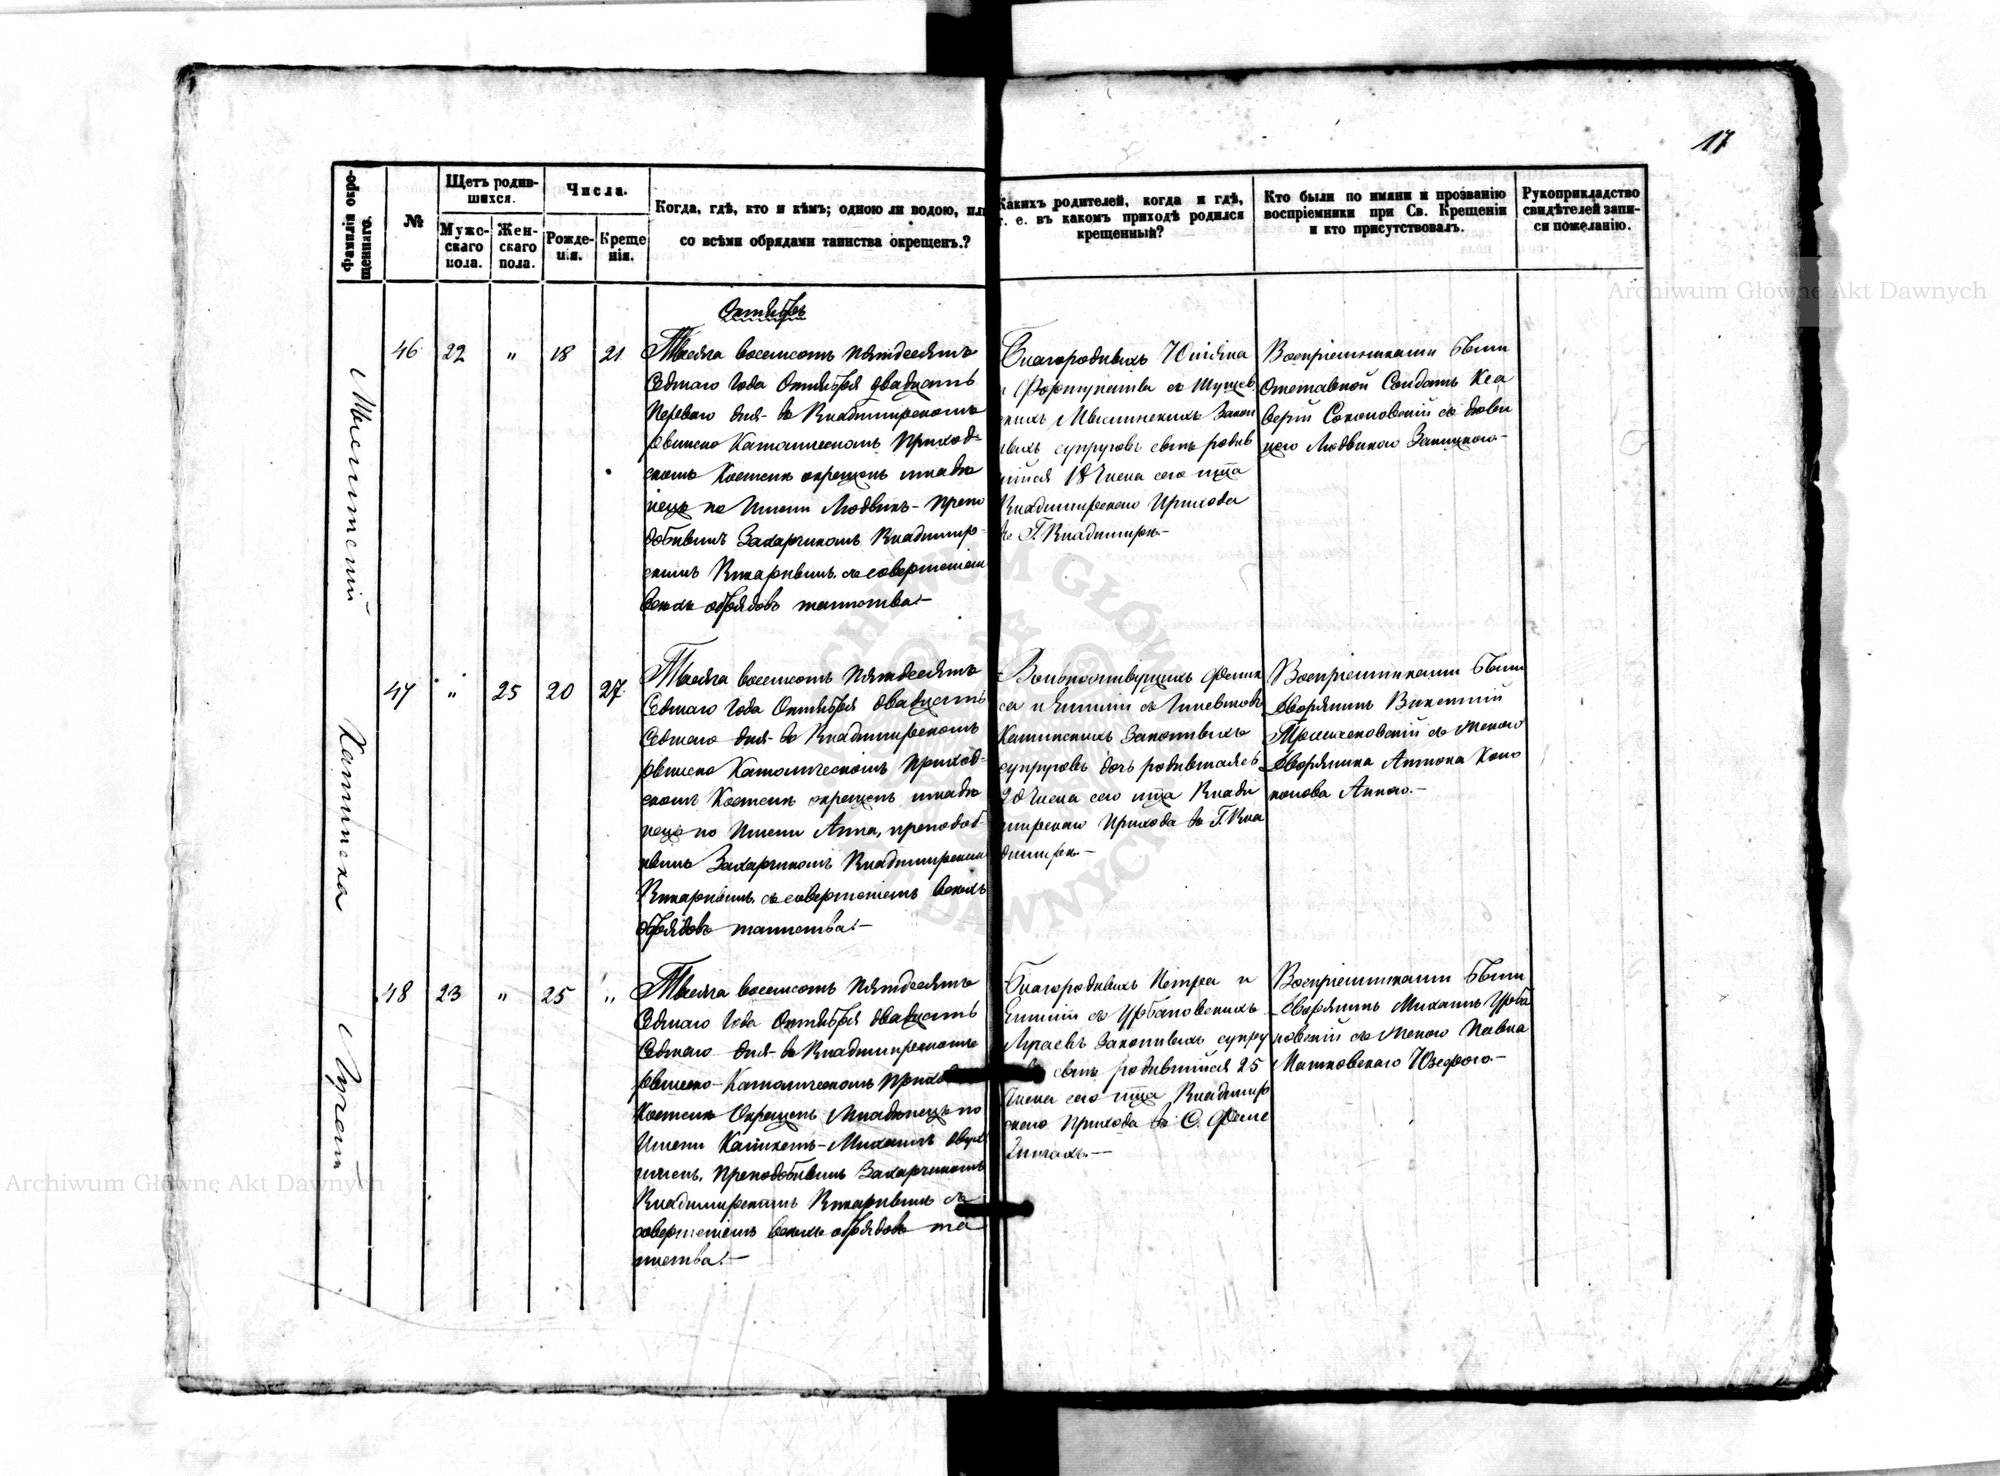 17
Фамилія окре-
щеннаго.
№
Щетъ родив-
шихся.
Мужс-
скаго
пола.
Жен-
скаго
пола.
Числа.
Рожде-
нія.
Креще
нія.
Когда, гдѣ, кто и кѣмъ; одною ли водою, или
со всѣми обрядами таинства окрещенъ.?
Какихъ родителей, когда и гдѣ,
т. е. въ какомъ приходѣ родился
крещенный?
Кто были по имяни и прозванію
воспріемники при Св. Крещеніи
и кто присутствовалъ.
Рукоприкладство
свидѣтелей запи-
си пожеланію.
Октябрь
Мыслинскій
46 22 " 18 21
Тысяча восемсотъ пятдесятъ
Седмаго Года Октября двадцать
Перваго дня въ Владимирскомъ
Римско Католическомъ Приход-
скомъ Костелѣ окрещенъ младе
нецъ по Имени Людвикъ - Препо
добнымъ Захарчикомъ Владимир-
скимъ Викарнымъ съ совершеніем
всѣхъ обрядовъ таинства.-
Благородныхъ Юліяна
и Фортунаты съ
Мыслинскихъ Закон
ныхъ супруговъ сынъ родив
шійся 18 Числа сего мца
Владимирскаго Прихода
въ Г. Владимирѣ.-
Воспріемниками были
Отставной Солдатъ Кса
верій Соколовскій съ
Людвикою
Калинска
47 " 25 20 27
Тысяча восемсотъ пятдесятъ
Седмаго Года Октября двадцать
Седмаго дня въ Владимирскомъ
Римско Католическомъ Приход-
скомъ Костелѣ окрещенъ младе
нецъ по Имени Анна, преподоб-
нымъ Захарчикомъ Владимирским
Викарнымъ съ совершеніемъ всѣхъ
обрядовъ таинства.-
Феликса и Емиліи съ
Калинскихъ Законныхъ
супруговъ дочь родившаяся
20 Числа сего мца Влади
мирскаго Прихода въ Г. Вла
димирѣ.-
Воспріемниками были
Дворянинъ Викентій
съ женою
Дворянина Антона Коно
нова Анною.-
Лугаій
48 23 " 25 "
Тысяча восемсотъ пятдесятъ
Седмаго Года Октября двадцать
Седмаго дня въ Владимирскомъ
Римско-Католическомъ
Костелѣ Окрещенъ Младенецъ по
Имени Каликстъ-Михаилъ двухъ
именъ, Преподобнымъ Захарчикомъ
Владимирскимъ Викарнымъ съ
совершеніемъ всѣхъ обрядовъ та
инства.-
Благородныхъ Петра и
Емиліи съ Урбановскихъ
Законныхъ супру
сынъ родившійся 25
Числа сего мца Владимир
скаго Прихода въ С.
Воспріемниками были
Дворянинъ Михаилъ Урба
новскій съ женою Павла
Юзефою.-
Archiwum Główne Akt Dawnych
Archiwum Główne Akt Dawnych
ARCHIWUM GŁÓWNE AKT DAWNYCH